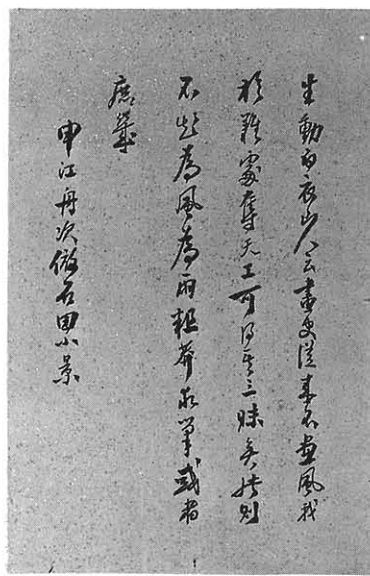 生動白衣山人云畫史從來不畫風我
於難處奪天工可得其三昧矣則
不為風為雨粗莽求筆或者
庶幾
申江舟次倣石田小景